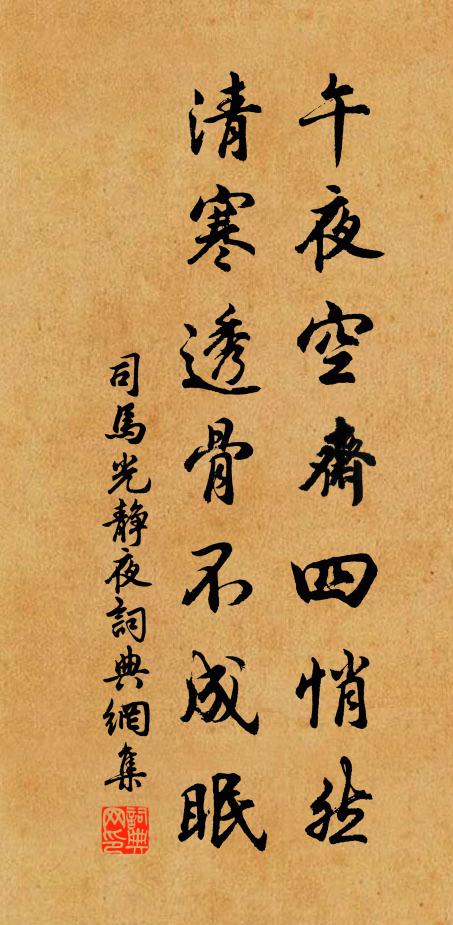 午夜空齋四悄然
清寒透骨不成眠
司馬光靜夜詞典網集
詞典网印